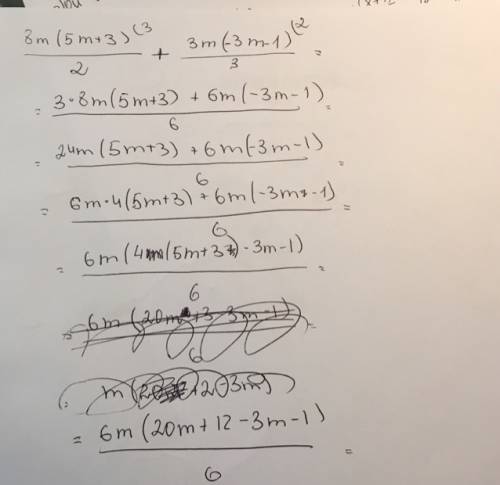 8m(5m+3)^(3 / 2 + 3m(-3m-1)^(2 / 3 =
= 3·8m(5m+3) + 6m(-3m-1) / 6 =
= 24m(5m+3) + 6m(-3m-1) / 6 =
= 6m·4(5m+3) + 6m(-3m-1) / 6 =
= 6m(4(5m+3)-3m-1) / 6 =
= 6m(20m+3-3m-1) / 6 =
= 6m(20m+12-3m-1) / 6 =